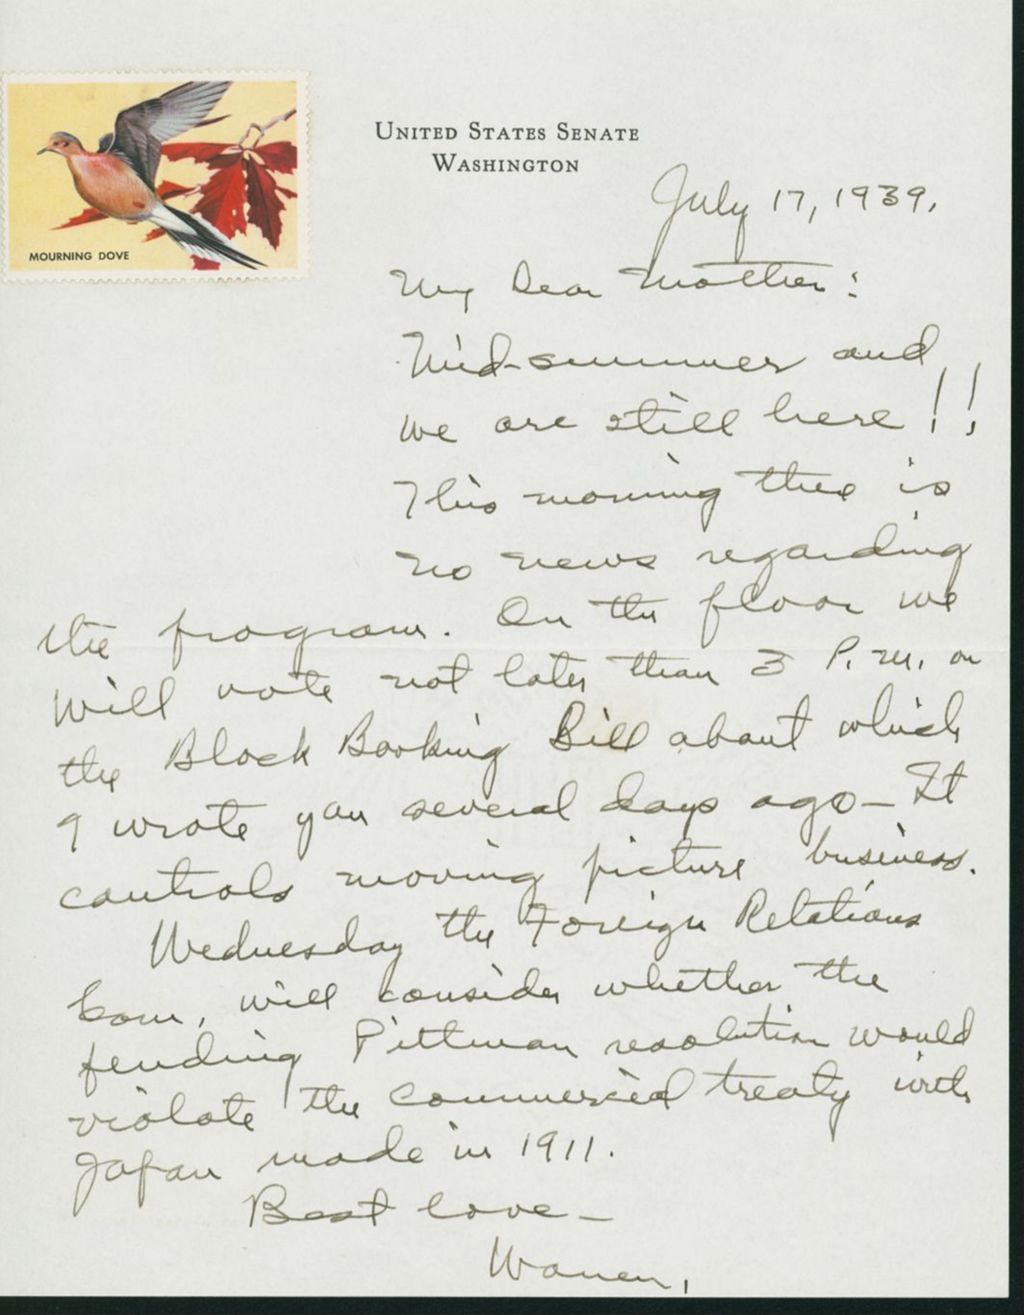 MOURNING DOVE
UNITED STATES SENATE
WASHINGTON
July 17, 1939.
My Dear Mother:
Mid-summer and
we are still here!!
This morning there is
no news regarding
the program. On the floor we
will vote not later than 3 P.M. on
the Block Booking Bill about which
I wrote you several days ago— It
controls moving picture business.
Wednesday the Foreign Relations
Com, will consider whether the
pending Pittman resolution would
violate the commercial treaty with
Japan made in 1911.
Best love—
Warren,